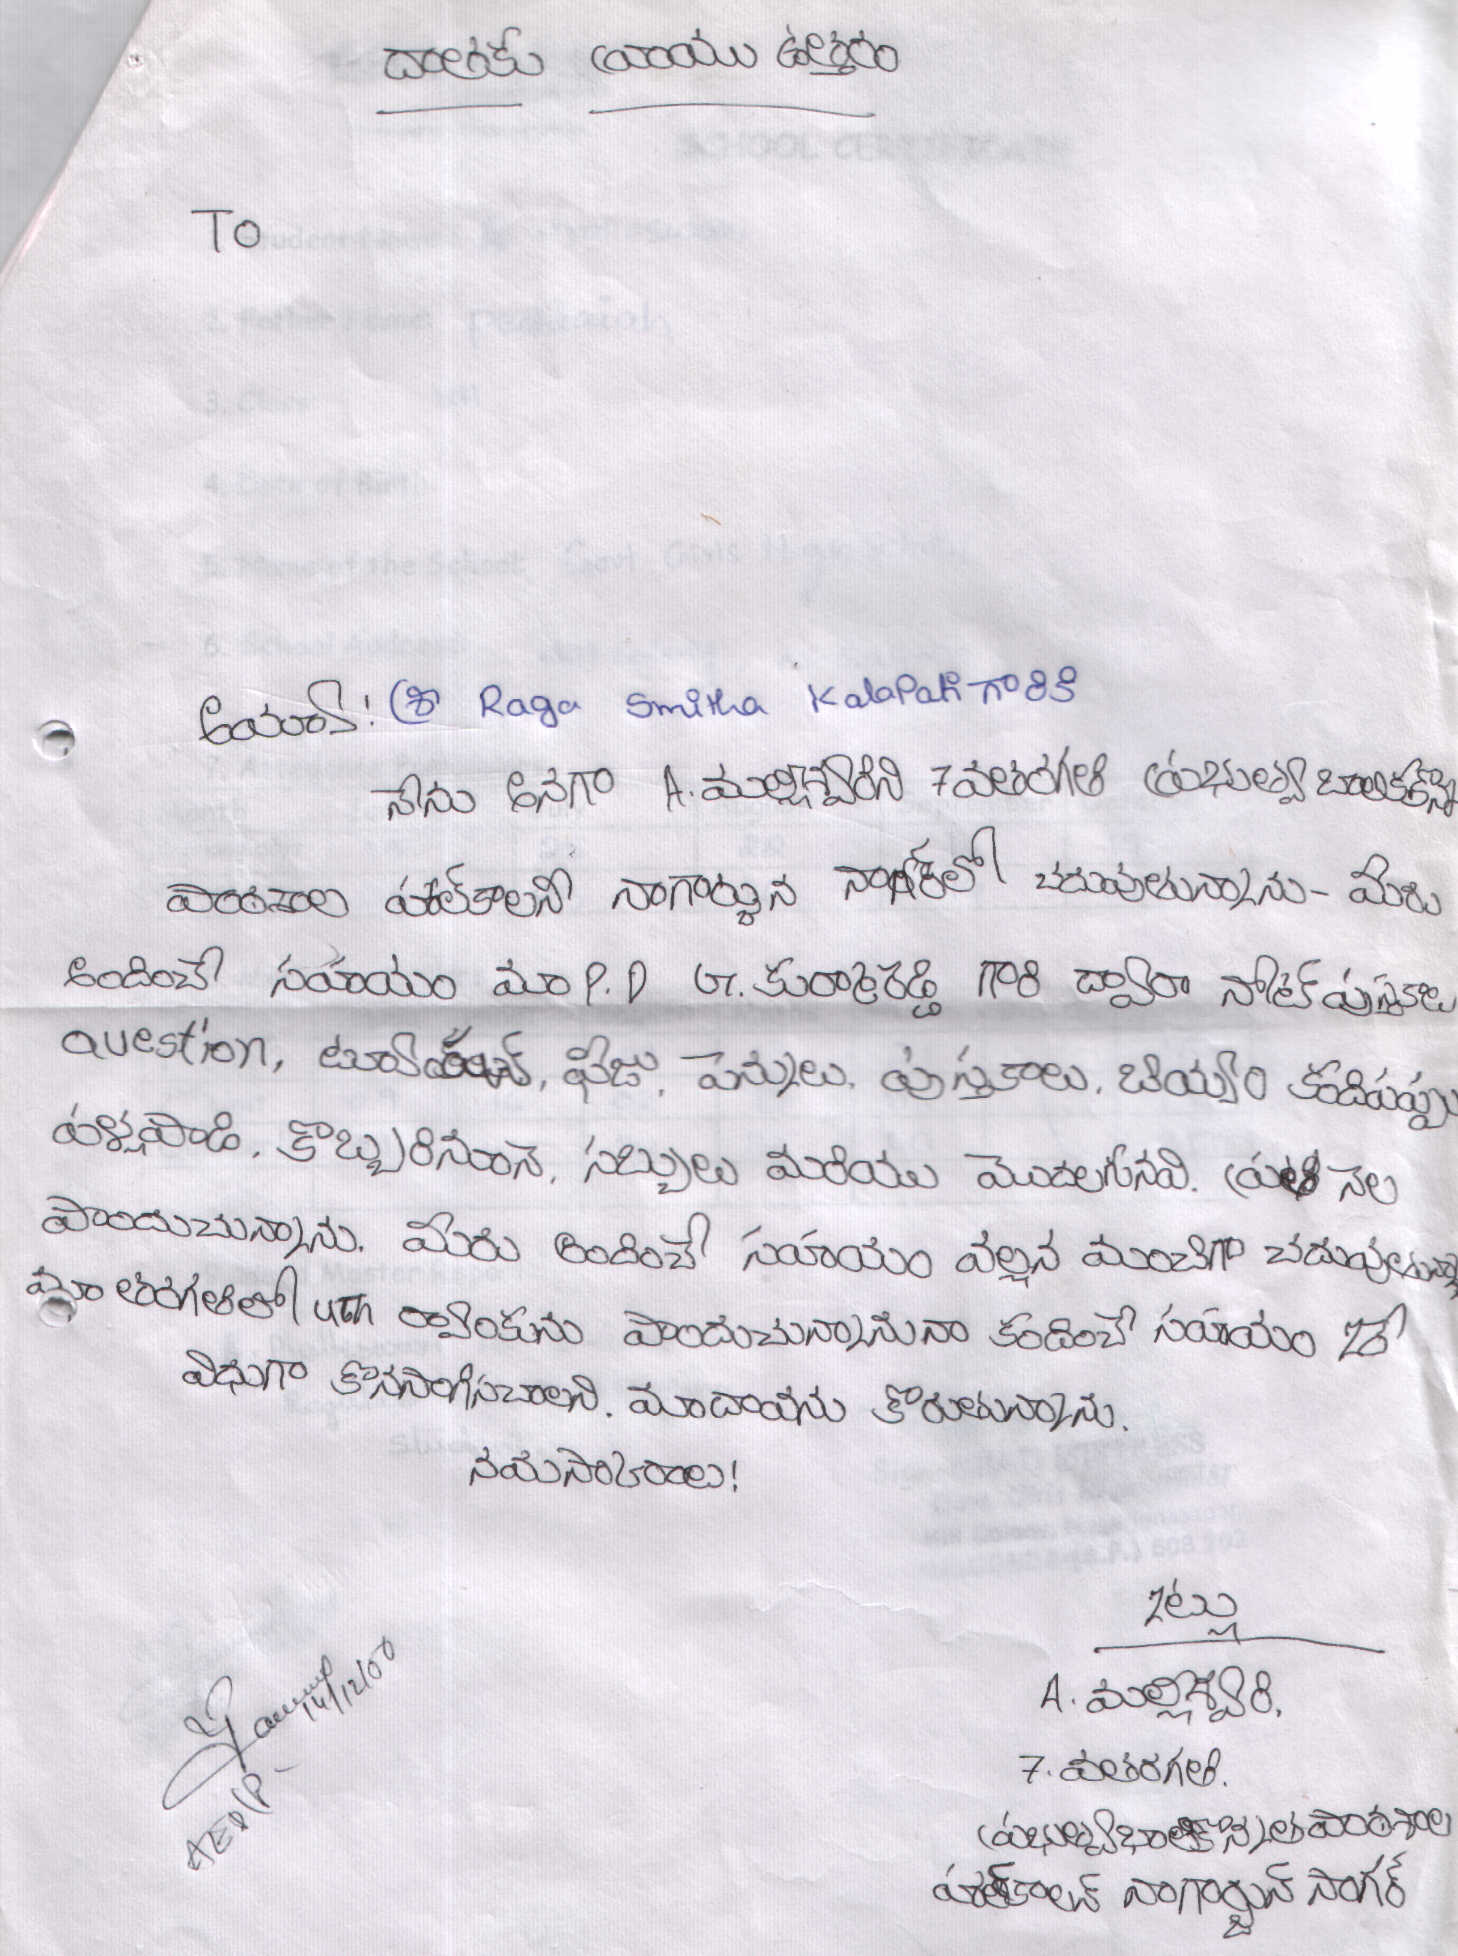 దాతకు వ్రాయు ఉత్తరం
To
అయ్యా! శ్రీ Raga Smitha Kalapati గారికి
నేను అనగా A. మల్లీశ్వరిని 7వతరగతి ప్రభుత్వ బాలికోన్నత
పాఠశాల హిల్‌కాలని నాగార్జున సాగర్‌లో చదువుతున్నాను - మీరు
అందించే సహాయం మా P.D G. కురాకిరెడ్డి గారి ద్వారా నోట్ పుస్తకాలు
question, ఫీజు, పెన్నులు. పుస్తకాలు. బియ్యం కందిపప్పు
పళ్ళపొడి, కొబ్బరినూనె, సబ్బులు మరియు మొదలగునవి. ప్రతి నెల
పొందుచున్నాను. మీరు అందించే సహాయం వల్లన మంచిగా చదువుతున్నా
మా తరగతిలో 4th ర్యాంకును పొందుచున్నానునా కందించే సహాయం ఇదే
విధుగా కొనసాగించాలని. మాదాయను కోరుతున్నాను.
నమస్కారాలు!
ఇట్లు
A. మల్లీశ్వరి,
7. వతరగతి.
ప్రభుత్వబాలికోన్నత పాఠశాల
హిల్‌కాలని నాగార్జున సాగర్
14/12/00